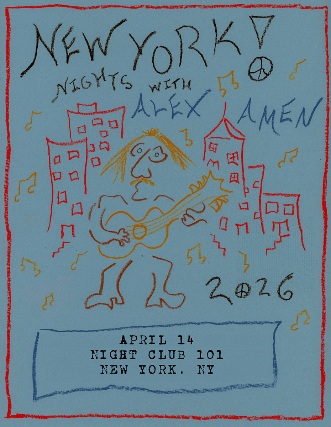 NEW YORK!
NIGHTS WITH
ALEX AMEN
2026
APRIL 14
NIGHT CLUB 101
NEW YORK, NY